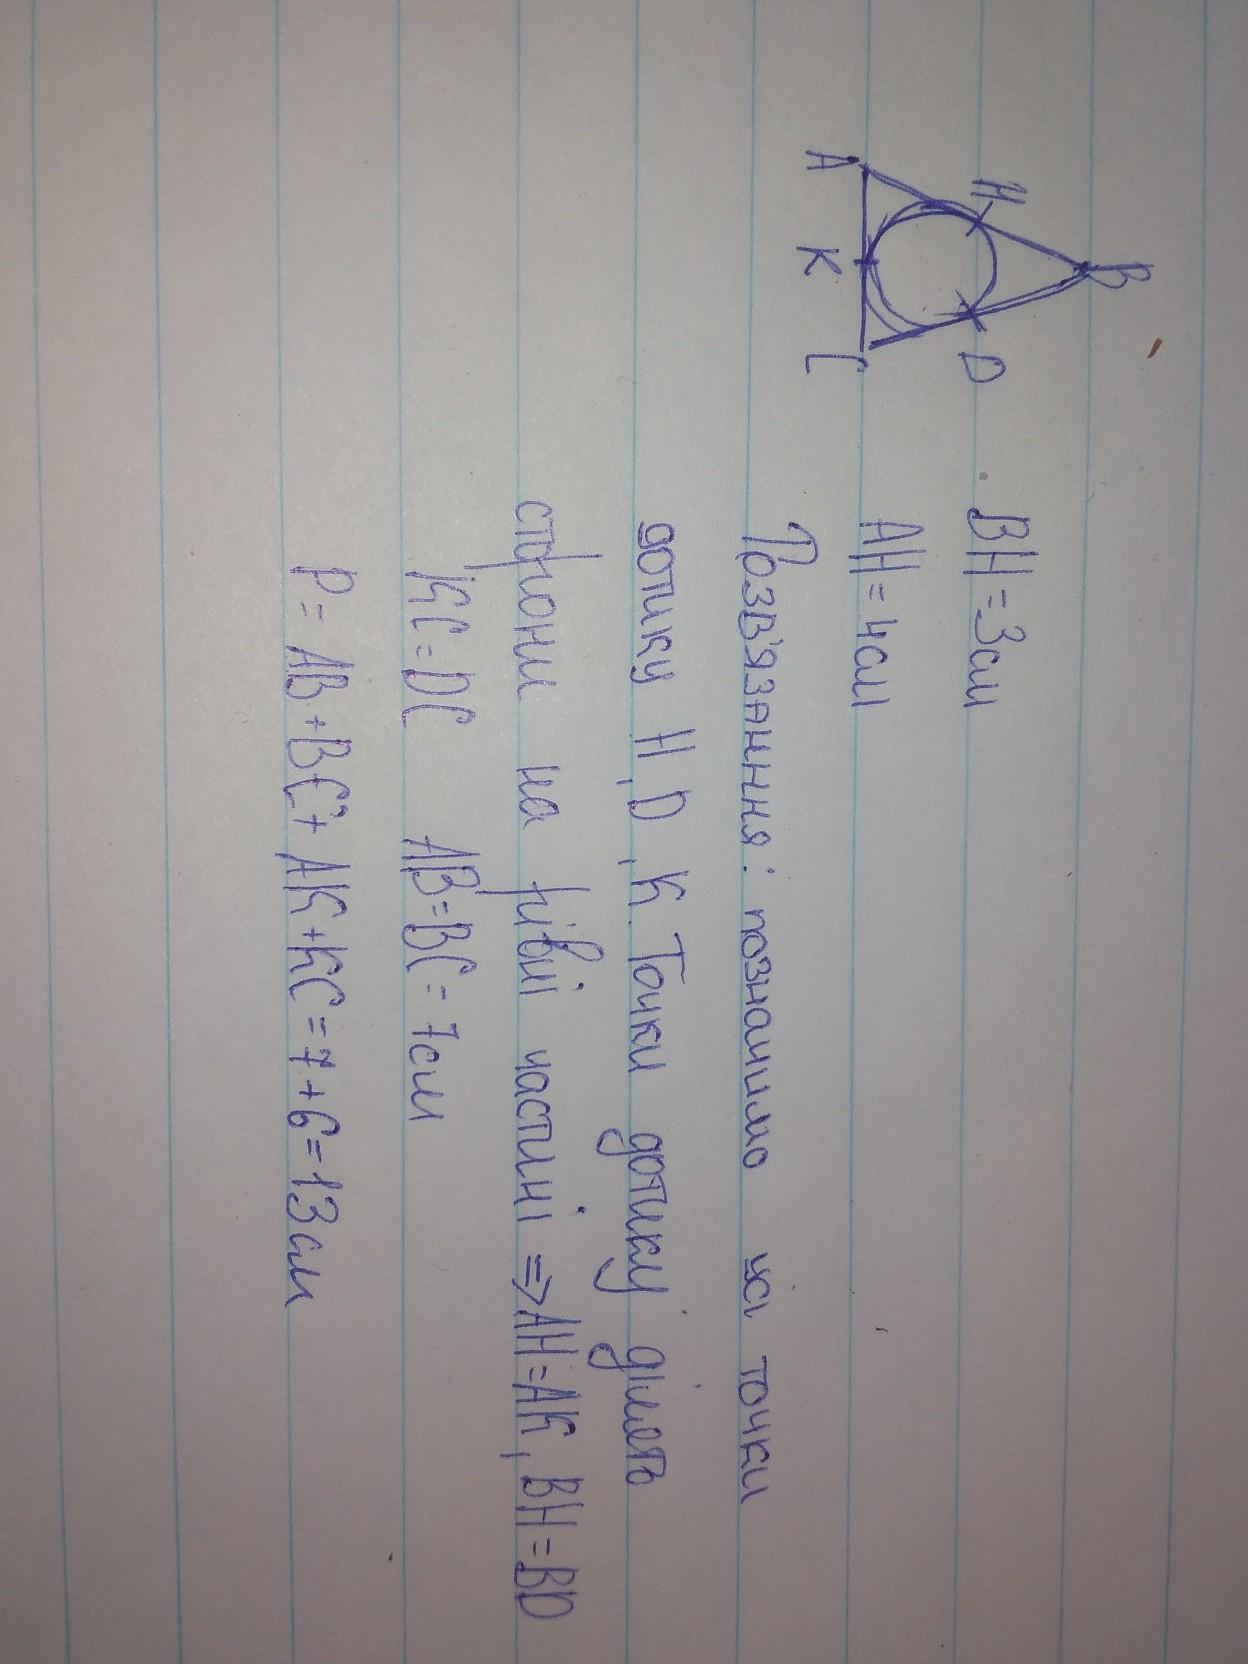 B
H
D
A
K
C
BH=3см
AH=4см
Розв'язання: позначимо ці точки
дотику H, D, K. Точки дотику ділять
сторони на рівні частині => AH=AK, BH=BD
KC=DC AB=BC=7см
P=AB+BC+AK+KC=7+6=13см